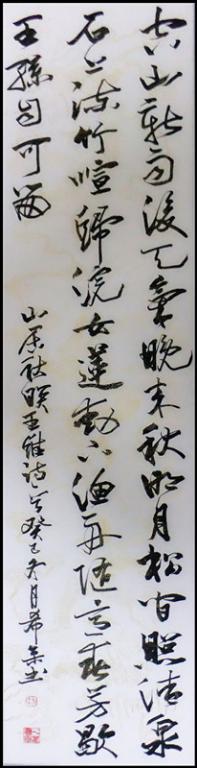 空山新雨後天氣晚來秋明月松間照清泉
石上流竹喧歸浣女蓮動下漁舟隨意春芳歇
王孫自可留
山居秋暝王維詩癸巳冬月希